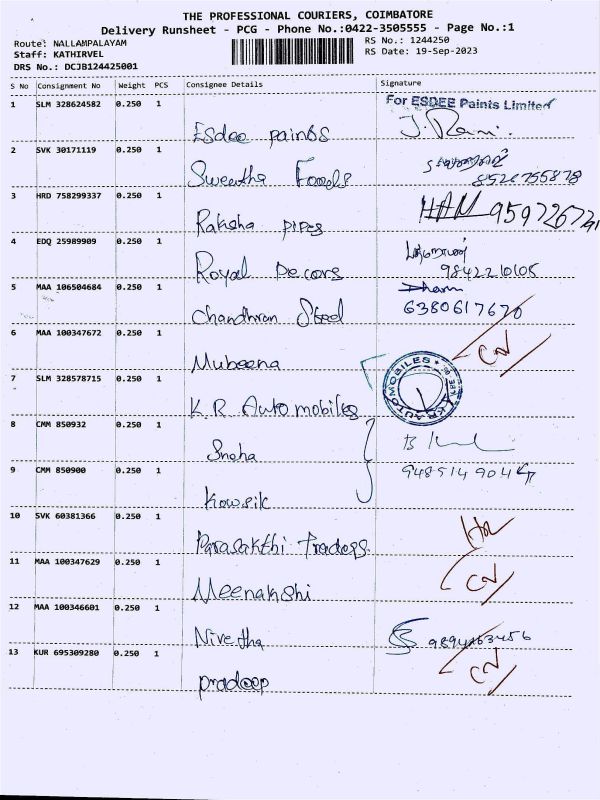 THE PROFESSIONAL COURIERS, COIMBATORE
Delivery Runsheet - PCG - Phone No.:0422-3505555 - Page No.:1
Route: NALLAMPALAYAM
RS No.: 1244250
Staff: KATHIRVEL
RS Date: 19-Sep-2023
DRS No.: DCJB124425001
S No Consignment No Weight PCS Consignee Details Signature
1 SLM 328624582 0.250 1
For ESDEE Paints Limited
Esdee paints J. Rani.
2 SVK 30171119 0.250 1
Sweatha Foods 8526755878
3 HRD 758299337 0.250 1
Raksha pipes
4 EDQ 25989909 0.250 1
Royal Decors 9842210105
5 MAA 106504684 0.250 1
Chandhran Steel 6380617670
6 MAA 100347672 0.250 1
Mubeena CN
7 SLM 328578715 0.250 1
K.R Automobiles
8 CMM 850932 0.250 1
Sneha
9 CMM 850900 0.250 1
Kowsik
10 SVK 60381366 0.250 1
Parasakthi Traders
11 MAA 100347629 0.250 1
Meenakshi CN
12 MAA 100346601 0.250 1
Nivetha
13 KUR 695309280 0.250 1
Pradeep CN